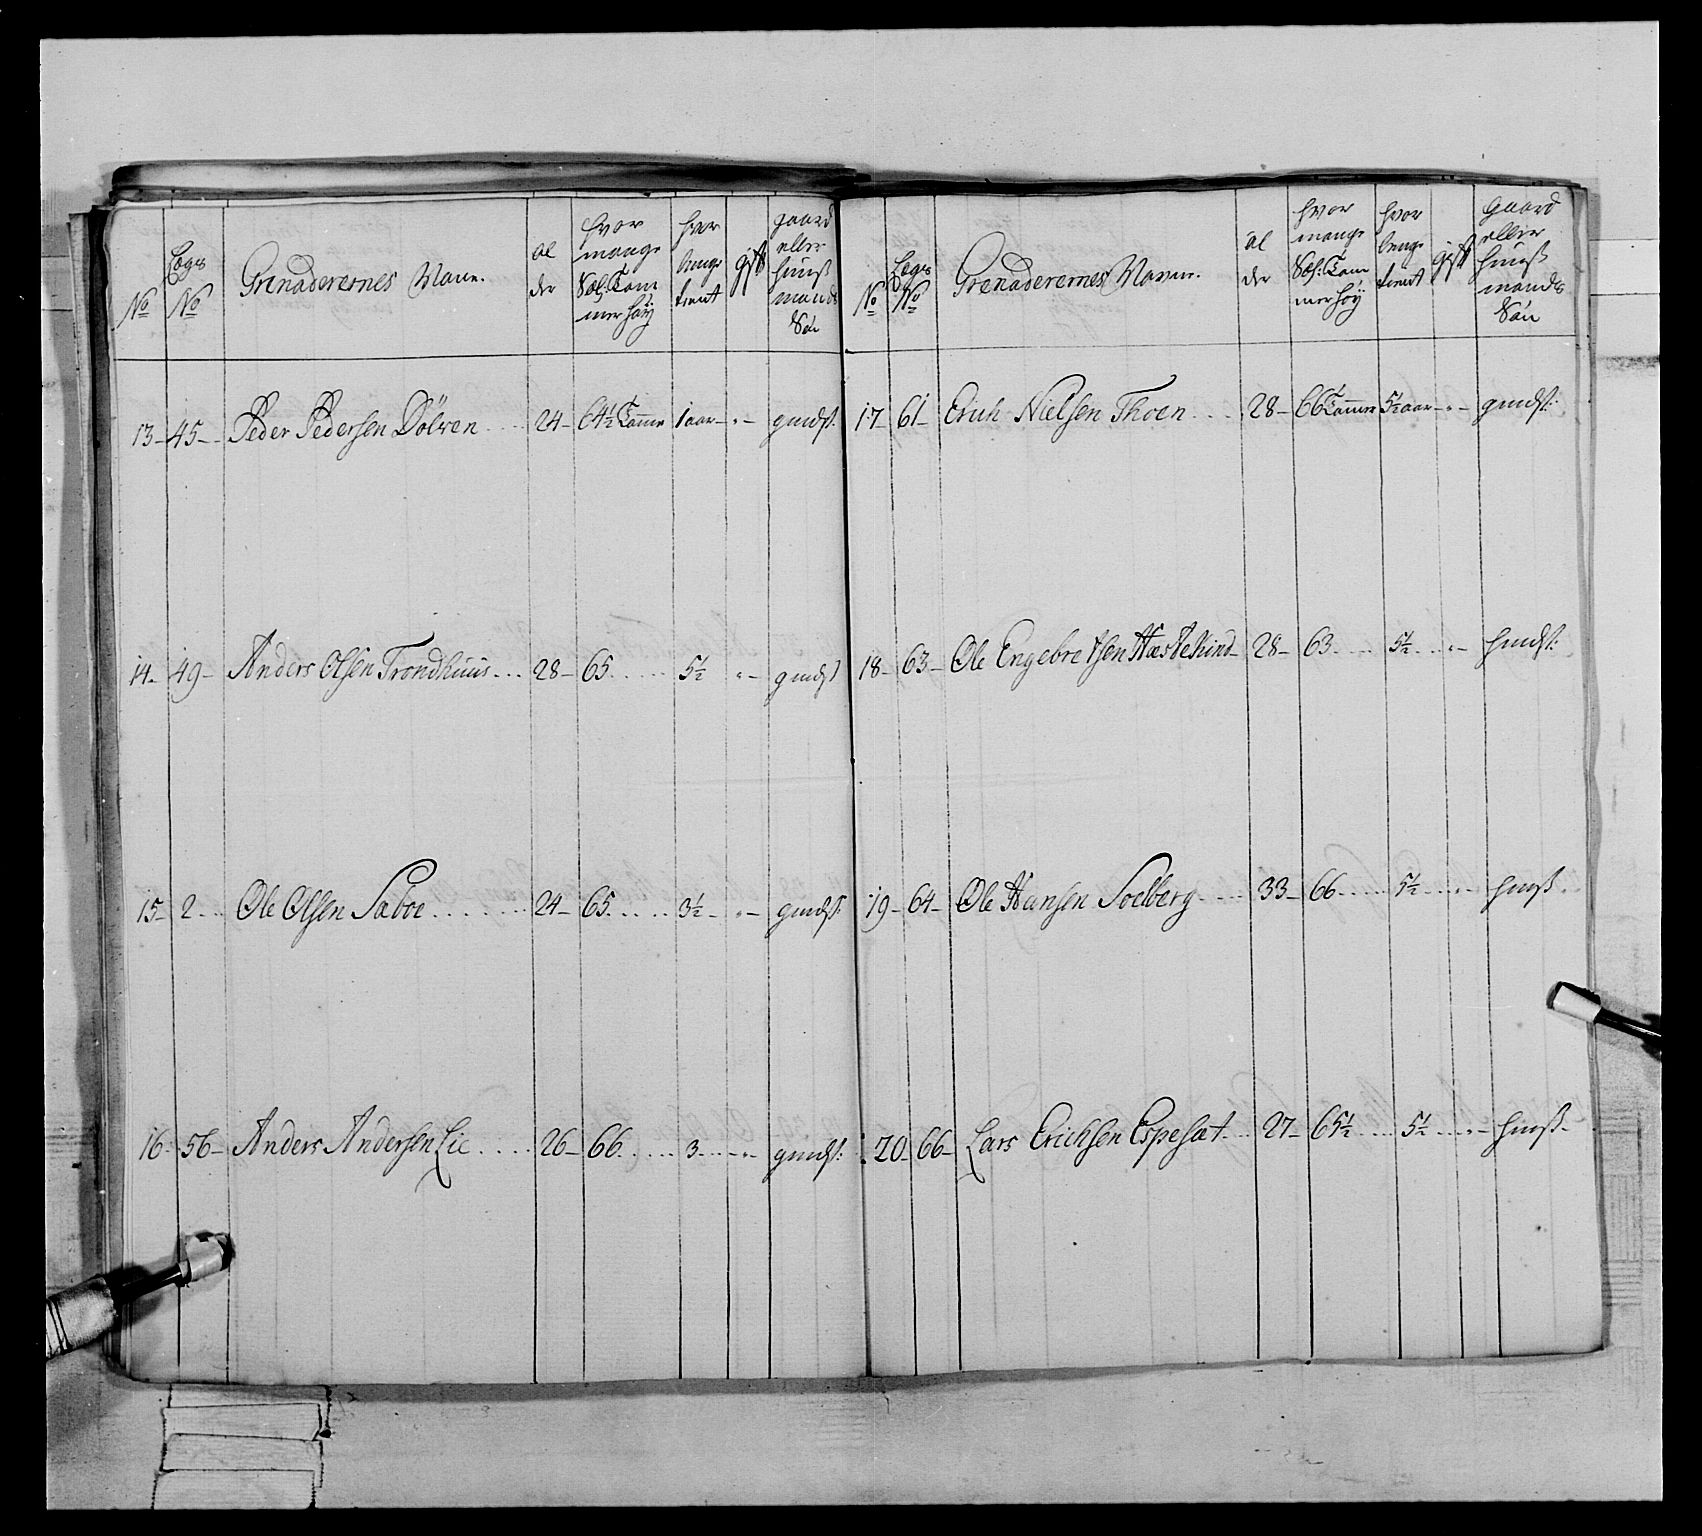 No
Lægs No
Grenaderernes Navne.
al
der
hvor
mange
Søl: Tom
mer höy
hvor
lenge
tient
gift
gaard
eller
huus
mands
Søn
13 - 45 - Peder Pedersen Dölven .... 24 - 64½ Tomme 1 aar - " - gmds:
14 - 49 - Anders Olsen Trondhuus ... 28 - 65 ...... 5½ " - gmds:
15 - 2 ... Ole Olsen Saboe ....... 24 - 65 ...... 3½ - " - gmds:
16 - 56 - Anders Andersen Lie ..... 26 - 66 ...... 3 ... " - gmds:
No
Lægs No
Grenaderernes Navne.
al
der
hvor
mange
Søl: Tom
mer höy
hvor
lenge
tient
gift
gaard
eller
huus
mands
Søn
17 - 61 - Erich Nielsen Thoen .... 28 - 66 Tomme 5½ aar - " - gmds:
18 - 63 - Ole Engebretsen Hæstekind - 28 - 63 ..... 5½ ... " - hmds:
19 - 64 - Ole Hansen Soelberg ..... 33 - 66 ...... 5½ .... " -
20 - 66 - Lars Erichsen Espesæt ... 27 - 65½ .... 5½ .... " -